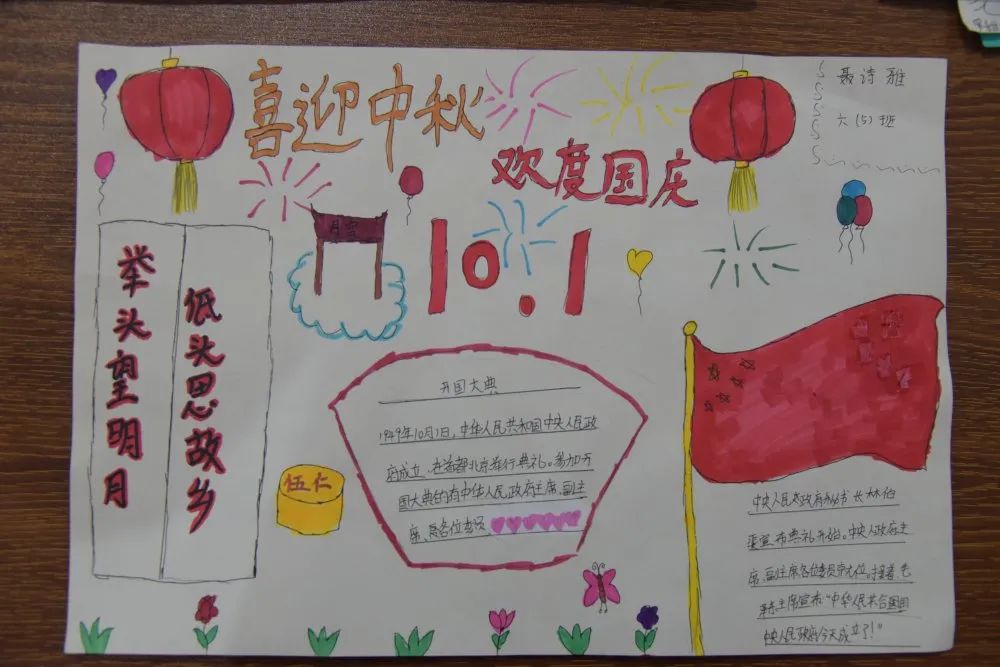 喜迎中秋
欢度国庆
聂诗雅
六(5)班
10.1
举头望明月
低头思故乡
伍仁
开国大典
1949年10月1日,中华人民共和国中央人民政
府成立,在首都北京举行典礼。参加开
国大典的有中华人民政府主席、副主
席、各位委员
中央人民政府秘书长林伯
渠宣布典礼开始。中央人政府主
席、副主席各位委员就位。接着,毛
主席宣布“中华人民共合国
中央人民政府今天成立了!”